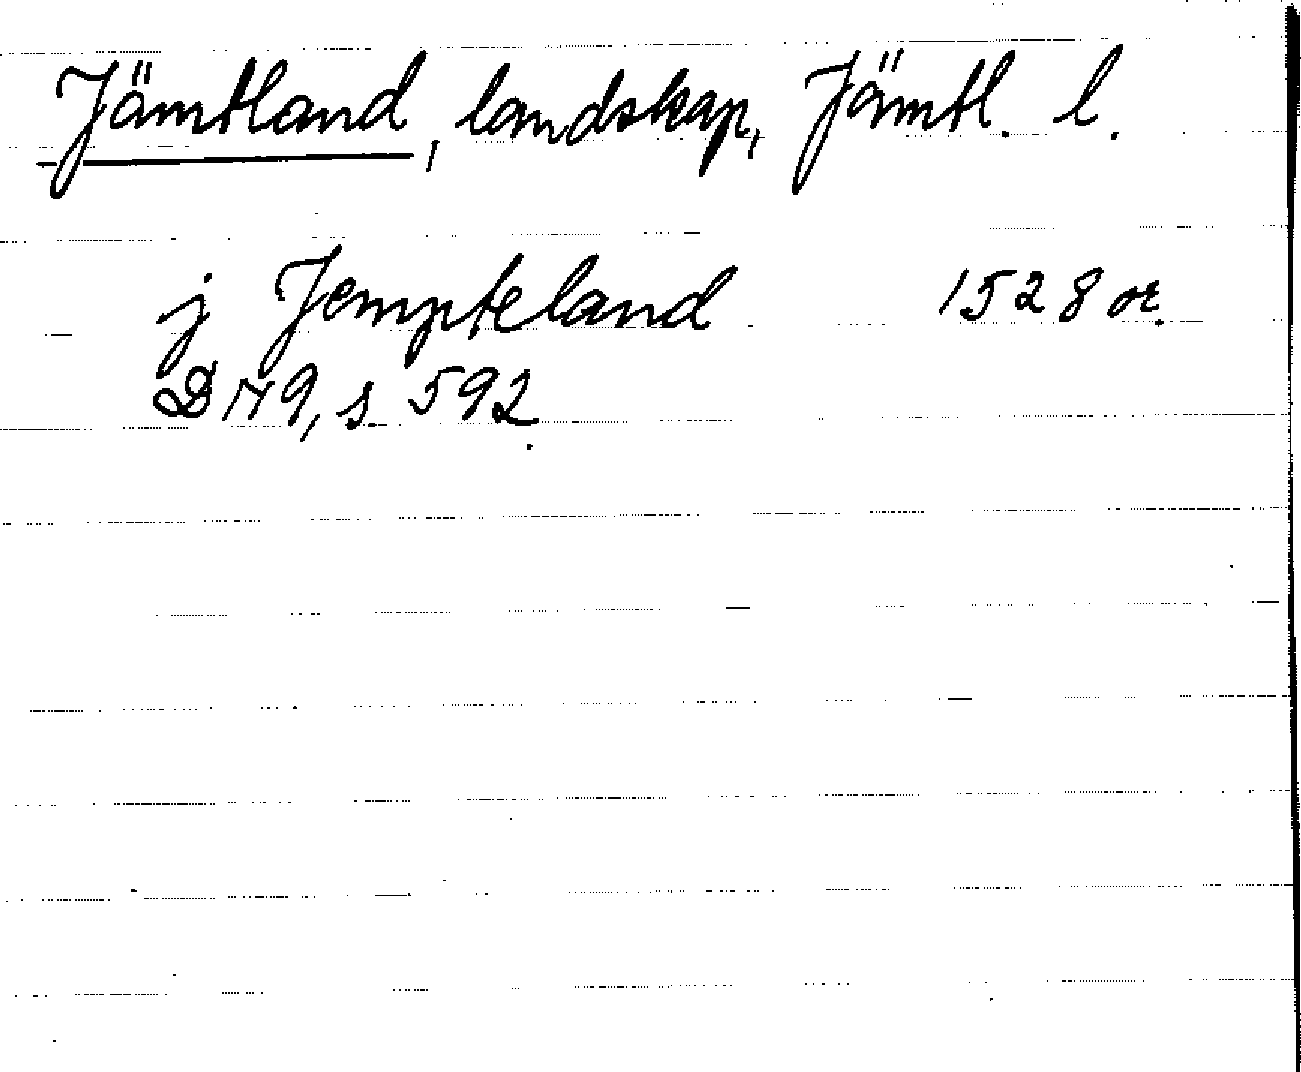 Jämtland, landskap, Jämtl. l.
j Jempteland 1528 or.
DN 9, s. 592.